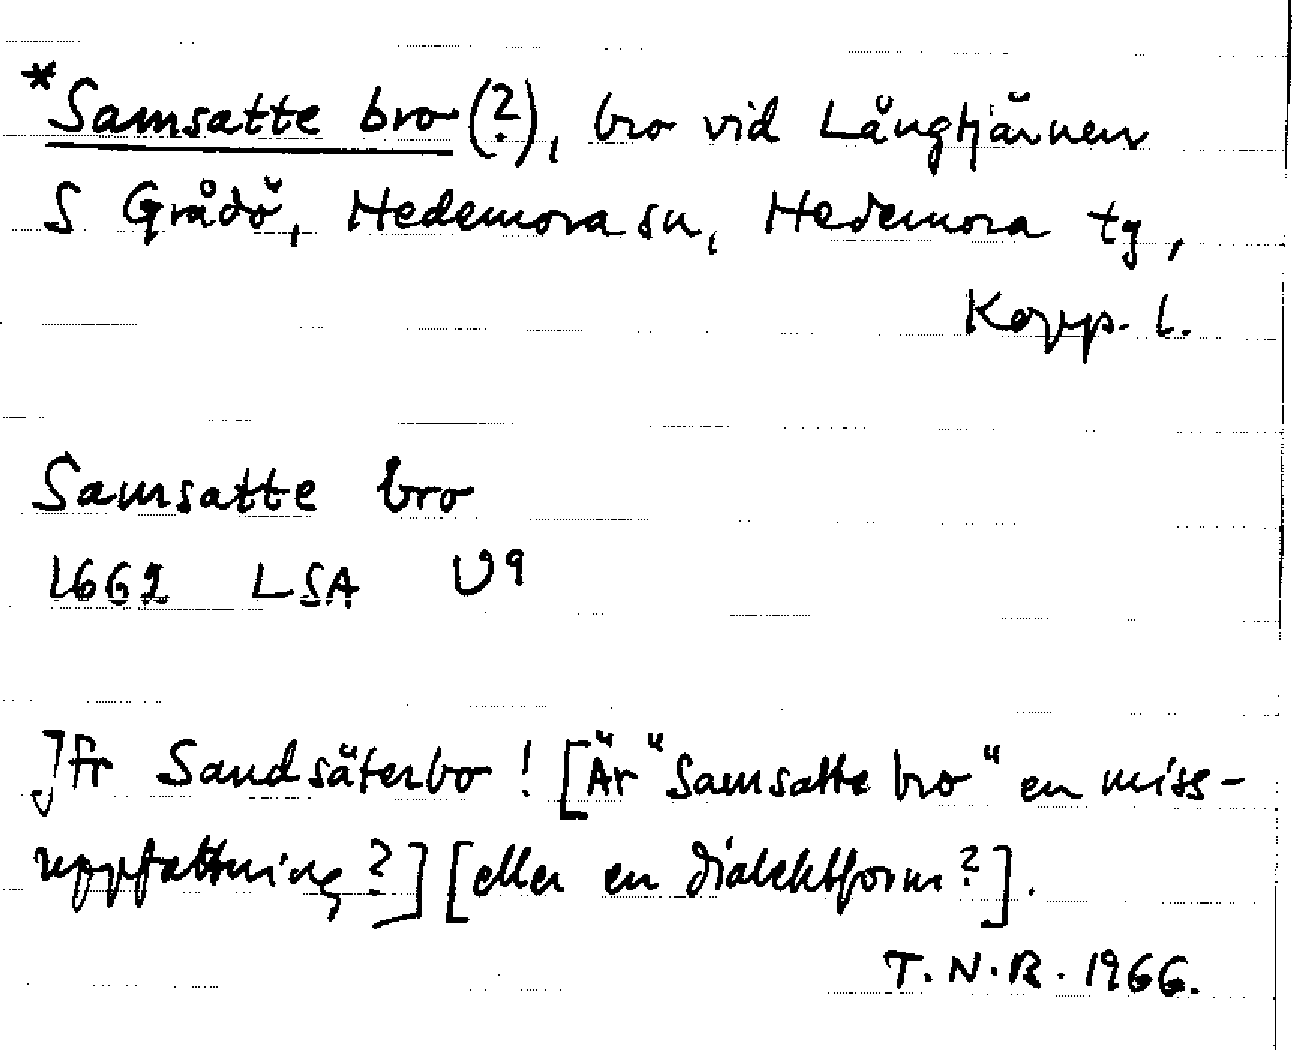 *Samsatte bro (?), bro vid Långtjärnen
S Grådö, Hedemora sn, Hedemora tg,
Kopp. l.
Samsatte bro
1662 LSA U9
Jfr Sandsäterbo! [Är "Samsatte bro" en miss-
uppfattning?] [eller en dialektform?].
T.N.R. 1966.